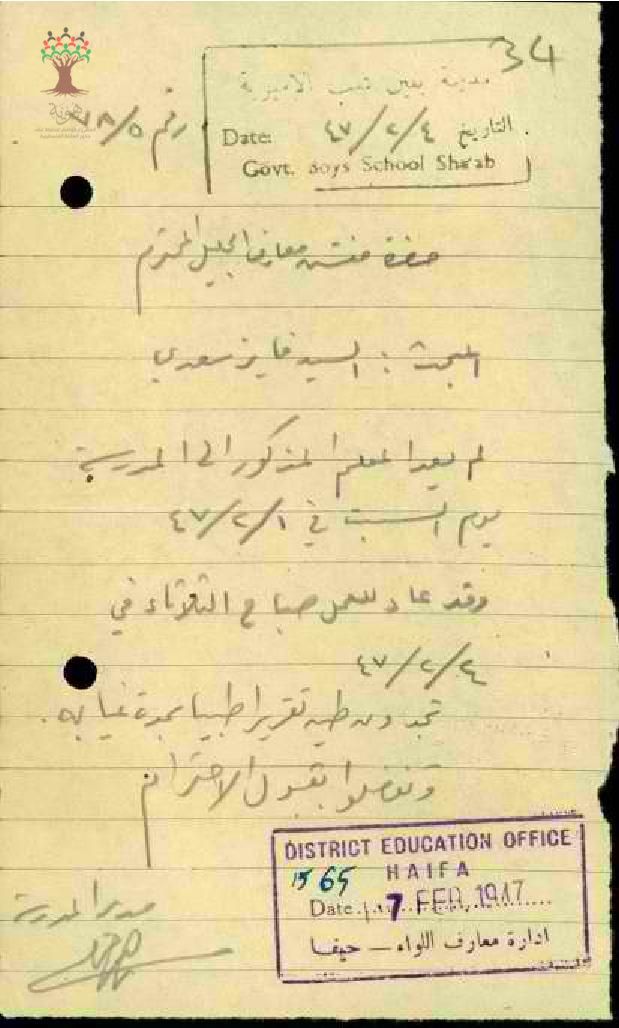 34
مدرسة بنين شعب الاميرية
رقم ٧٨/٥
Date: ٤٧/٢/٤ التاريخ
Govt. Boys School Sha'ab
حضرة مفتش معارف الجليل المحترم
المبحث : السيد فايز سعدي
لم يعد المعلم المذكور الى المدرسة
يوم السبت في ٤٧/٢/١
وقد عاد للعمل صباح الثلاثاء في
٤٧/٢/٤
تجدون طيه تقريرا طبيا بمدة غيابه .
وتفضلوا بقبول الاحترام
مدير المدرسة
DISTRICT EDUCATION OFFICE
1565 HAIFA
Date 7 FEB 1947
ادارة معارف اللواء - حيفا